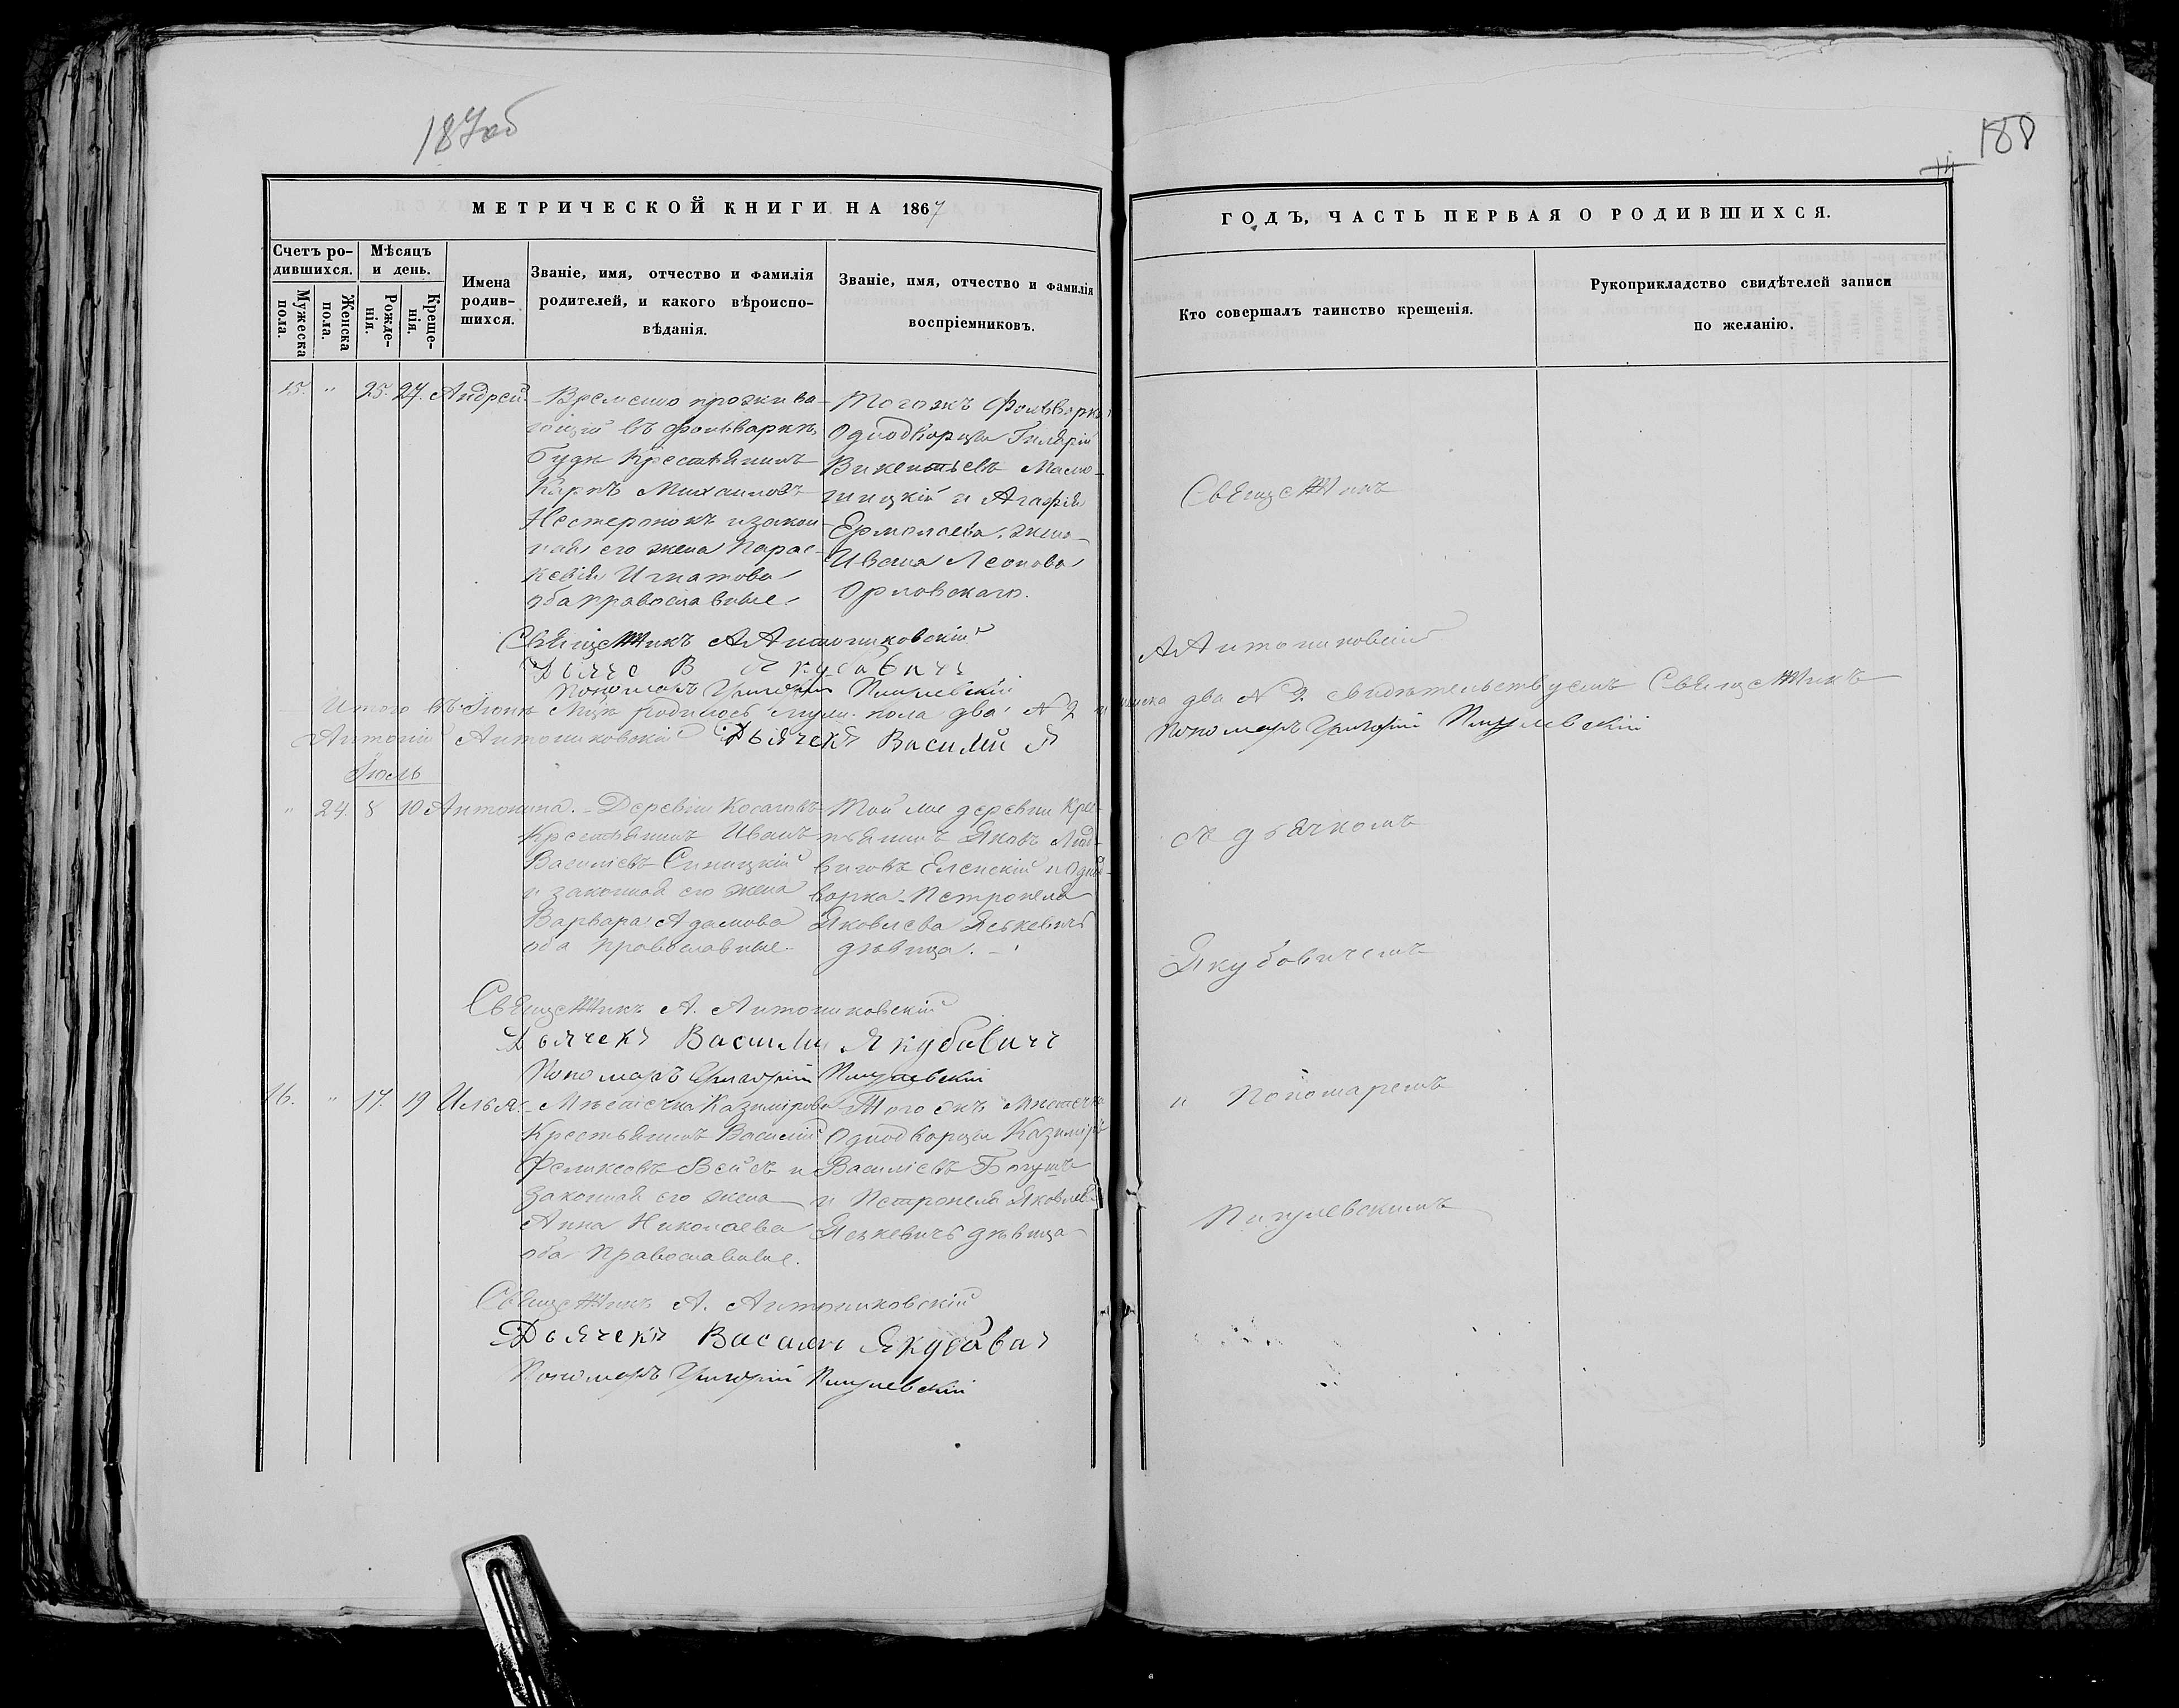 187об
188
МЕТРИЧЕСКОЙ КНИГИ НА 1867
ГОДЪ, ЧАСТЬ ПЕРВАЯ О РОДИВШИХСЯ.
Счетъ ро-
дившихся.
Мужеска
пола.
Женска
пола.
Мѣсяцъ
и день.
Рожде-
нія.
Креще-
нія.
Имена
родив-
шихся.
Званіе, имя, отчество и фамилія
родителей, и какого вѣроиспо-
вѣданія.
Званіе, имя, отчество и фамилія
воспріемниковъ.
Кто совершалъ таинство крещенія.
Рукоприкладство свидѣтелей записи
по желанію.
15. " 25. 27. Андрей.
Временно прожива-
ющій въ фольваркѣ
Крестьянинъ
Карпъ Михаиловъ
Нестеронокъ и закон-
ная его жена Парас-
кевія Игнатова
оба православные.
Тогожъ Фольварка
Однодворецъ Гилярій
Викентьевъ
и Агафія
Ермолаева, жена
Ивана Леонова
Орловскаго.
Священникъ А Антониковскій
Пономарь Григорій Пигулевскій
Итого въ Іюнѣ М-цѣ родилось муж. пола два N 2 и
женска два N 2. свидѣтельствуемъ Священникъ
Антоній Антониковскій Дьячекъ Василій Я
Пономарь Григорій Пигулевскій
Іюль
" 24. 8 10 Антонина.
Деревни
Крестьянинъ Иванъ
Василіевъ Синицкій
и законная его жена
Варвара Адамова
оба православные.
Той же деревни Крес-
тьянинъ Яковъ Люд-
виговъ Еленскій и Одно-
ворка Петронеля
Яковлева Яськевичъ
дѣвица.
Священникъ А. Антониковскій
Дьячекъ Василій Якубовичъ
Пономарь Григорій Пигулевскій
16. " 17. 19 Илья.
Мѣстечка Казимірова
Крестьянинъ Василій
Феликсовъ Войсъ и
законная его жена
Анна Николаева
оба православные.
Того жъ Мѣстечка
Однодворецъ Казиміръ
Василіевъ Богушъ
и Петронеля Яковлева
Яськевичъ дѣвица
Священникъ А. Антониковскій
Дьячекъ Василій
Пономарь Григорій Пигулевскій
Священникъ
А Антониковскій
съ дьячкомъ
Якубовичемъ
и Пономаремъ
Пигулевскимъ